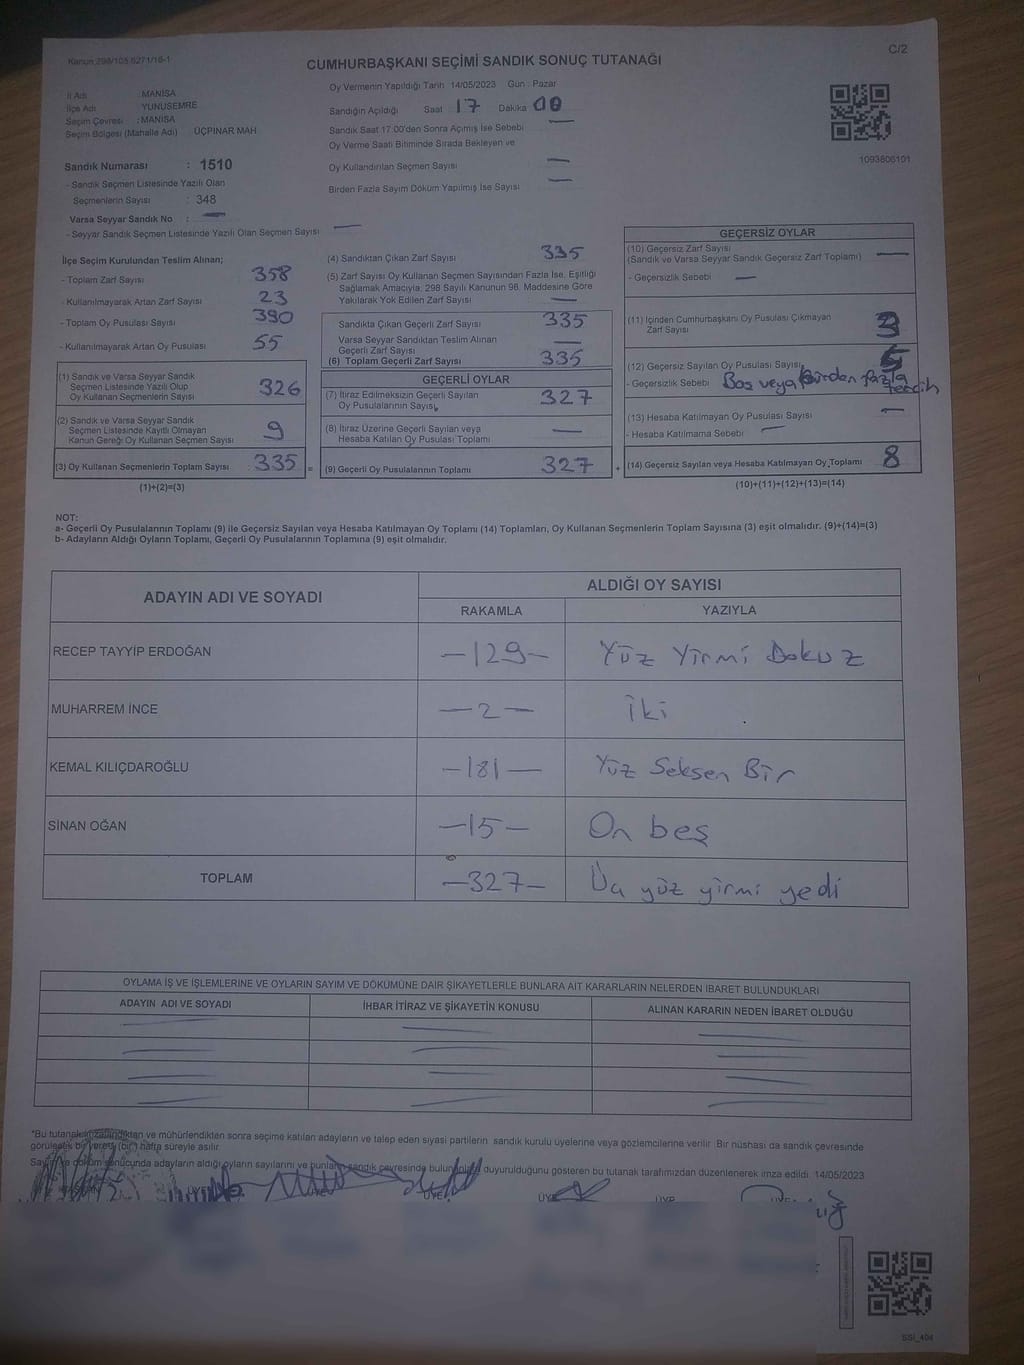 Kanun 298/105 6271/16-1
C/2
CUMHURBAŞKANI SEÇİMİ SANDIK SONUÇ TUTANAĞI
İl Adı : MANİSA
İlçe Adı : YUNUSEMRE
Seçim Çevresi : MANİSA
Seçim Bölgesi (Mahalle Adı) ÜÇPINAR MAH
Oy Vermenin Yapıldığı Tarih 14/05/2023 Gün : Pazar
Sandığın Açıldığı Saat 17 Dakika 00
Sandık Saat 17:00'den Sonra Açımış İse Sebebi —
Oy Verme Saati Bitiminde Sırada Bekleyen ve
Oy Kullandırılan Seçmen Sayısı —
Birden Fazla Sayım Döküm Yapılmış İse Sayısı —
1093806101
Sandık Numarası : 1510
- Sandık Seçmen Listesinde Yazılı Olan
Seçmenlerin Sayısı : 348
Varsa Seyyar Sandık No : —
- Seyyar Sandık Seçmen Listesinde Yazılı Olan Seçmen Sayısı —
İlçe Seçim Kurulundan Teslim Alınan;
- Toplam Zarf Sayısı 358
- Kullanılmayarak Artan Zarf Sayısı 23
- Toplam Oy Pusulası Sayısı 390
- Kullanılmayarak Artan Oy Pusulası 55
(1) Sandık ve Varsa Seyyar Sandık
Seçmen Listesinde Yazılı Olup
Oy Kullanan Seçmenlerin Sayısı 326
(2) Sandık ve Varsa Seyyar Sandık
Seçmen Listesinde Kayıtlı Olmayan
Kanun Gereği Oy Kullanan Seçmen Sayısı 9
(3) Oy Kullanan Seçmenlerin Toplam Sayısı : 335 =
(1)+(2)=(3)
(4) Sandıktan Çıkan Zarf Sayısı 335
(5) Zarf Sayısı Oy Kullanan Seçmen Sayısından Fazla İse, Eşitliği
Sağlamak Amacıyla, 298 Sayılı Kanunun 98. Maddesine Göre
Yakılarak Yok Edilen Zarf Sayısı —
Sandıkta Çıkan Geçerli Zarf Sayısı 335
Varsa Seyyar Sandıktan Teslim Alınan
Geçerli Zarf Sayısı —
(6) Toplam Geçerli Zarf Sayısı 335
GEÇERLİ OYLAR
(7) İtiraz Edilmeksizin Geçerli Sayılan
Oy Pusulalarının Sayısı 327
(8) İtiraz Üzerine Geçerli Sayılan veya
Hesaba Katılan Oy Pusulası Toplamı —
(9) Geçerli Oy Pusulalarının Toplamı 327 +
GEÇERSİZ OYLAR
(10) Geçersiz Zarf Sayısı
(Sandık ve Varsa Seyyar Sandık Geçersiz Zarf Toplamı) —
- Geçersizlik Sebebi —
(11) İçinden Cumhurbaşkanı Oy Pusulası Çıkmayan
Zarf Sayısı 3
(12) Geçersiz Sayılan Oy Pusulası Sayısı 5
- Geçersizlik Sebebi Boş veya birden fazla
tercih
(13) Hesaba Katılmayan Oy Pusulası Sayısı —
- Hesaba Katılmama Sebebi —
(14) Geçersiz Sayılan veya Hesaba Katılmayan Oy Toplamı 8
(10)+(11)+(12)+(13)=(14)
NOT:
a- Geçerli Oy Pusulalarının Toplamı (9) ile Geçersiz Sayılan veya Hesaba Katılmayan Oy Toplamı (14) Toplamları, Oy Kullanan Seçmenlerin Toplam Sayısına (3) eşit olmalıdır. (9)+(14)=(3)
b- Adayların Aldığı Oyların Toplamı, Geçerli Oy Pusulalarının Toplamına (9) eşit olmalıdır.
ADAYIN ADI VE SOYADI
ALDIĞI OY SAYISI
RAKAMLA YAZIYLA
RECEP TAYYİP ERDOĞAN —129— Yüz Yirmi Dokuz
MUHARREM İNCE —2— İki
KEMAL KILIÇDAROĞLU —181— Yüz Seksen Bir
SİNAN OĞAN —15— On beş
TOPLAM —327— yüz yirmi yedi
OYLAMA İŞ VE İŞLEMLERİNE VE OYLARIN SAYIM VE DÖKÜMÜNE DAİR ŞİKAYETLERLE BUNLARA AİT KARARLARIN NELERDEN İBARET BULUNDUKLARI
ADAYIN ADI VE SOYADI İHBAR İTİRAZ VE ŞİKAYETİN KONUSU ALINAN KARARIN NEDEN İBARET OLDUĞU
"Bu tutanak imzalandıktan ve mühürlendikten sonra seçime katılan adayların ve talep eden siyasi partilerin sandık kurulu üyelerine veya gözlemcilerine verilir. Bir nüshası da sandık çevresinde
görülecek bir yere (bir) hafta süreyle asılır.
Sayım ve döküm sonucunda adayların aldığı oyların sayılarını ve bunların sandık çevresinde bulunanlara duyurulduğunu gösteren bu tutanak tarafımızdan düzenlenerek imza edildi 14/05/2023
ÜYE ÜYE ÜYE
SSİ_404